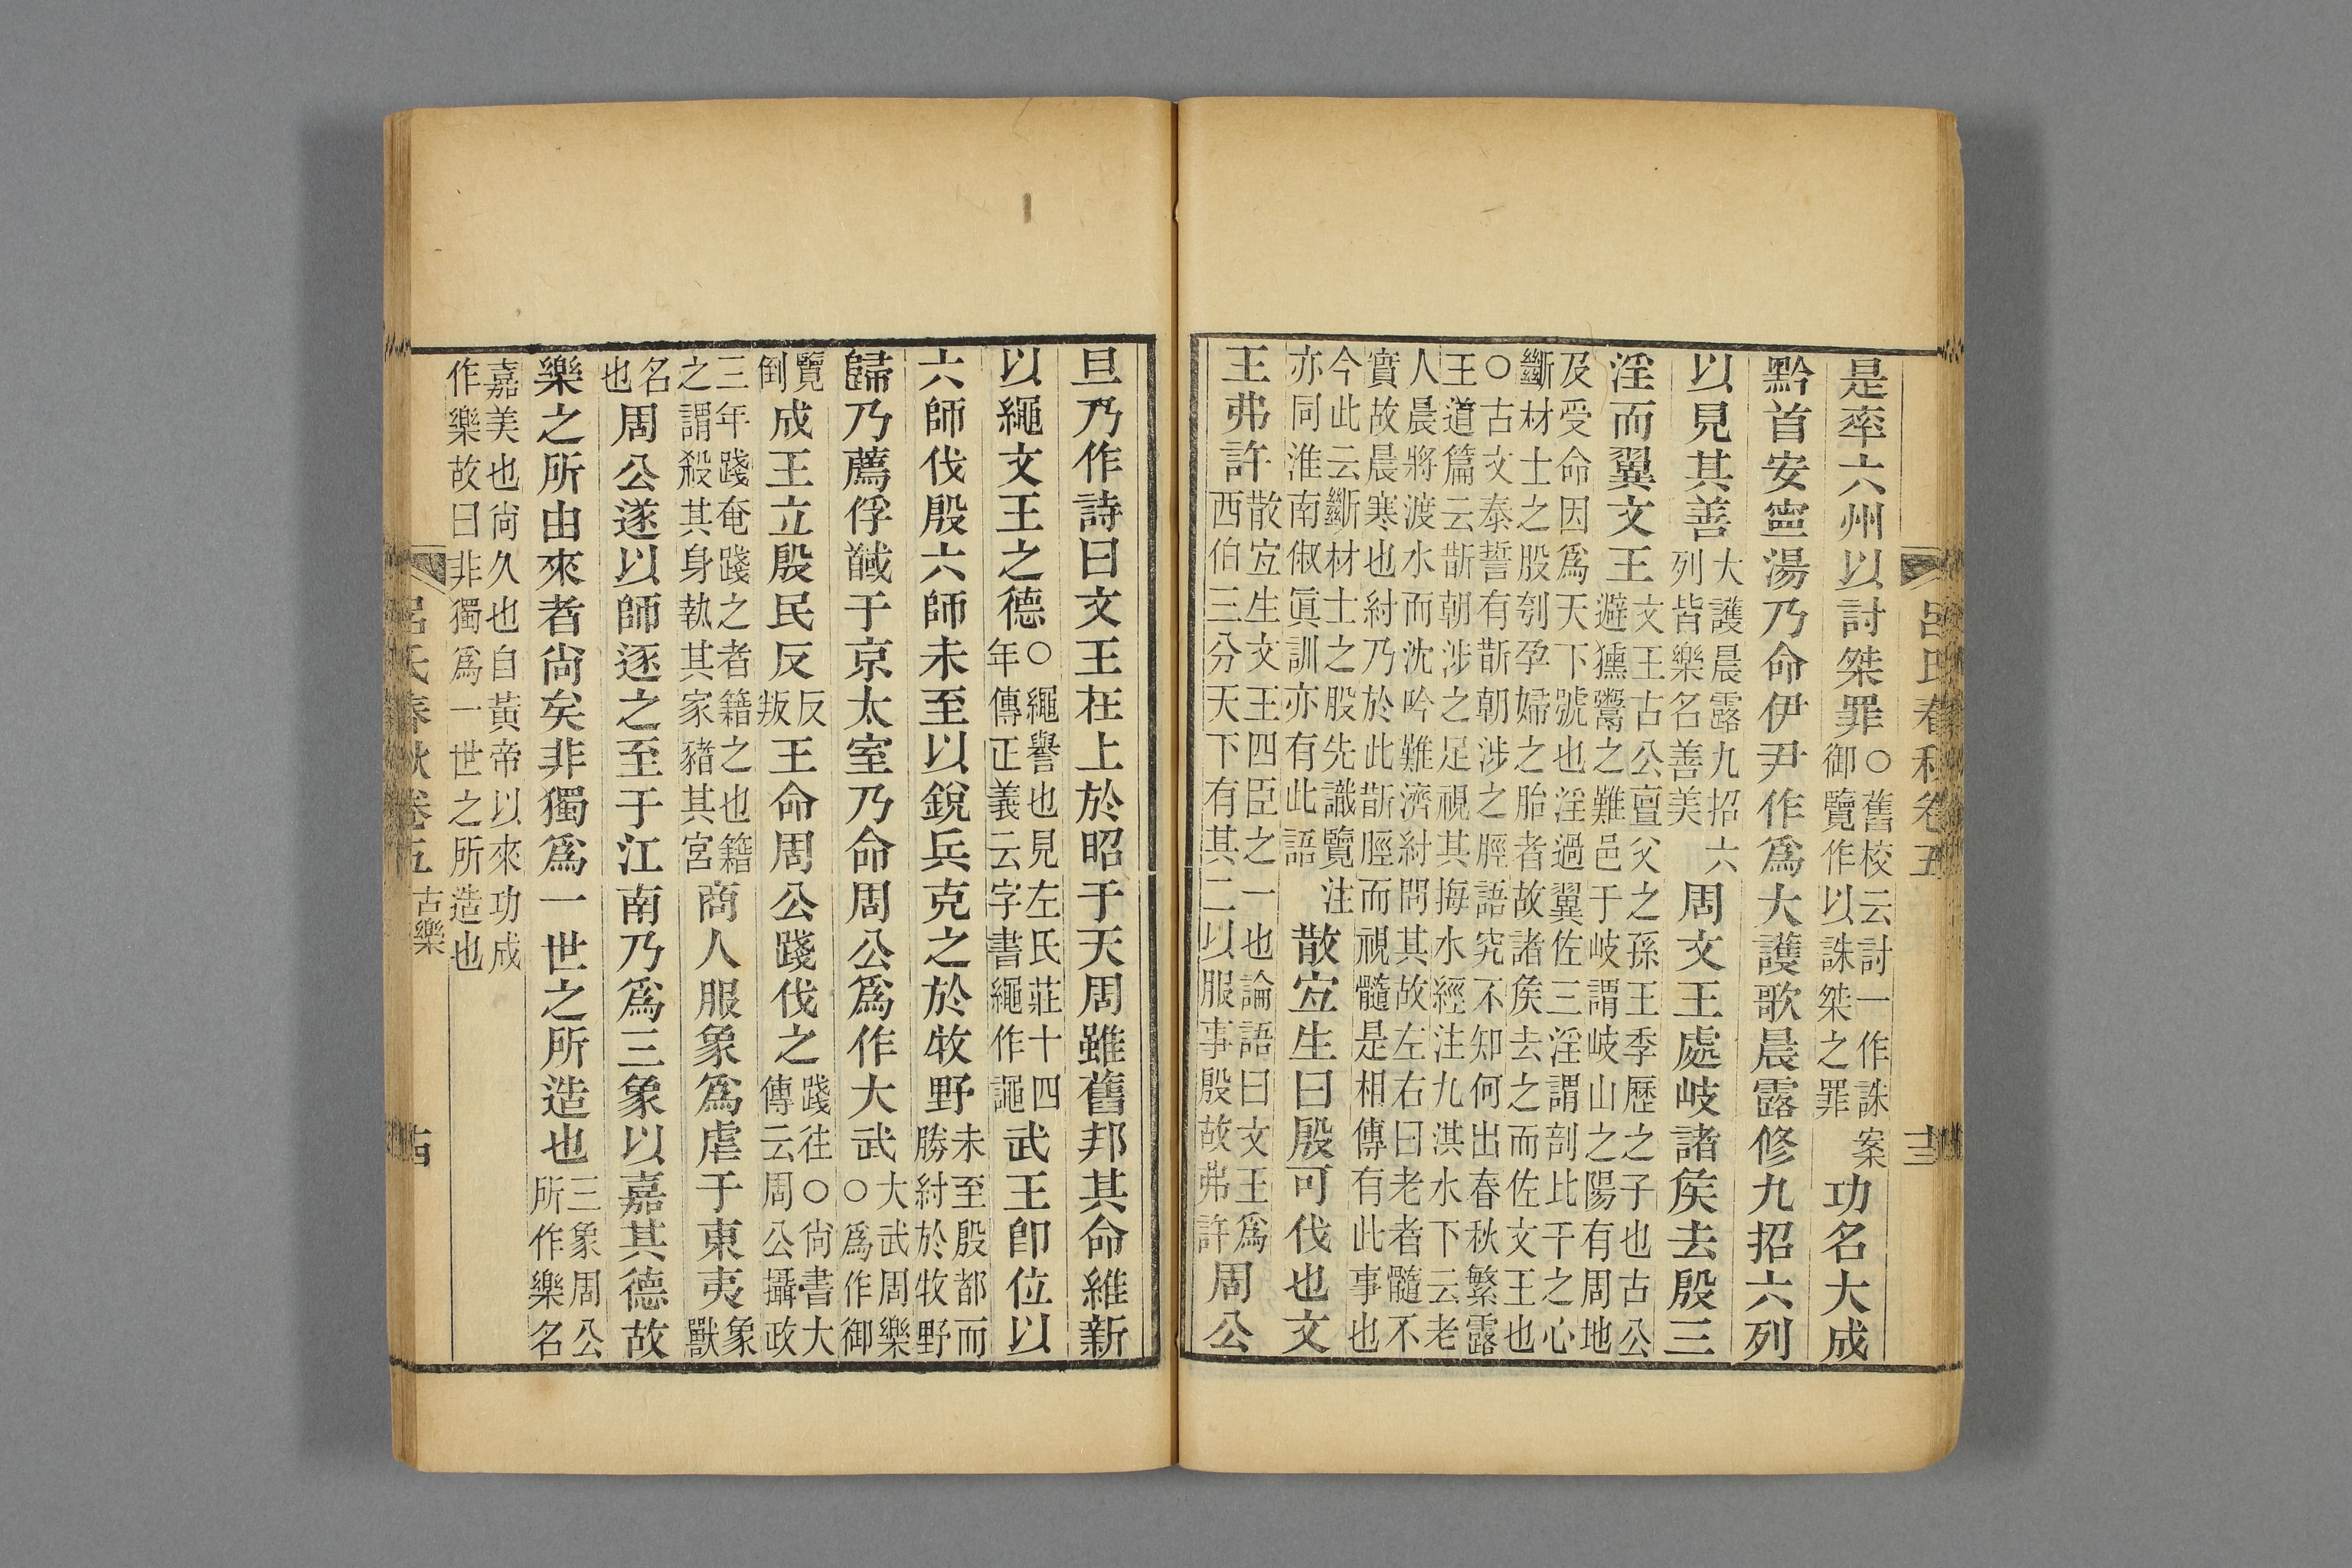 呂氏春秋卷五 十三
是率六州以討桀罪○舊校云討一作誅案御覽作以誅桀之罪功名大成
黔首安寍湯乃命伊尹作爲大護歌晨露修九招六列
以見其善大護晨露九招六列皆樂名善美周文王處岐諸矦去殷三
淫而翼文王文王古公亶父之孫王季歷之子也古公避獯鬻之難邑于岐謂岐山之陽有周地
及受命因爲天下號也淫過翼佐三淫謂剖比干之心斷材士之股刳孕婦之胎者故諸矦去之而佐文王也
○古文泰誓有斮朝涉之脛語究不知何出春秋繁露王道篇云斮朝涉之足視其拇水經注九淇水下云老
人晨將渡水而沈吟難濟紂問其故左右曰老者髓不實故晨寒也紂乃於此斮脛而視髓是相傳有此事也
今此云斷材士之股先識覽注亦同淮南俶眞訓亦有此語散宜生曰殷可伐也文
王弗許散宜生文王四臣之一也論語曰文王爲西伯三分天下有其二以服事殷故弗許周公
旦乃作詩曰文王在上於昭于天周雖舊邦其命維新
以繩文王之德○繩譽也見左氏莊十四年傳正義云字書繩作譝武王卽位以
六師伐殷六師未至以銳兵克之於牧野未至殷都而勝紂於牧野
歸乃薦俘馘于京太室乃命周公爲作大武大武周樂○爲作御
覽倒成王立殷民反反叛王命周公踐伐之踐往○尙書大傳云周公攝政
三年踐奄踐之者籍之也籍之謂殺其身執其家豬其宮商人服象爲虐于東夷象獸
名也周公遂以師逐之至于江南乃爲三象以嘉其德故
樂之所由來者尙矣非獨爲一世之所造也三象周公所作樂名
嘉美也尙久也自黃帝以來功成作樂故曰非獨爲一世之所造也
呂氏春秋卷五 古樂 古